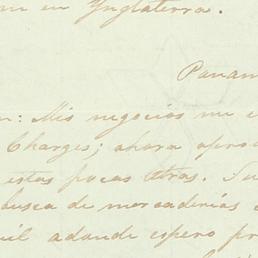 en Ynglaterra.
Panam
n: Mis negocios me
Charges; ahora apro
estas pocas letras. Su
busca de mercaderías
uil adonde espero pr